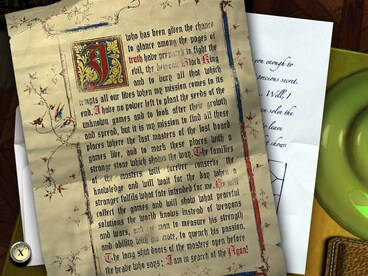 I who has been given the chance
to glance among the pages of
truth have prepared to fight the
evil, the Black King
and to warp all that which
tempts all our lives when my mission comes to its
end. I have no power left to plant the seeds of the
unknown games and to look after their growth
and spread, but it is my mission to find all these
places where the last masters of the lost board
games live, and to mark these places with a
strange stone which shows the way. The families
of the masters will forever conserve the
knowledge and will wait for the day when a
stranger fulfils what fate intended for me. He will
collect the games and will show what peaceful
solutions the world knows instead of weapons
and wars, to men to measure his strength
and ability with his mate, to quench his passion.
The long shut doors of the masters open before
the brave who says: I am in search of the Agon!
you enough to
precious secret.
Will, I
can solve the
to leave
shows
X